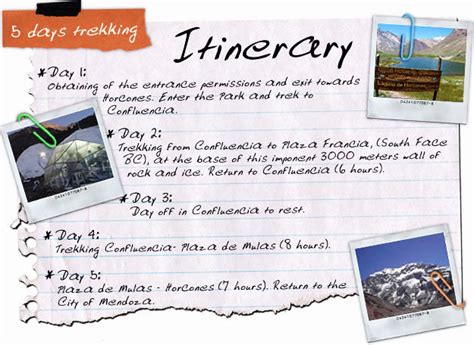 5 days trekking
Itinerary
* Day 1:
Obtaining of the entrance permissions and exit towards
Horcones. Enter the Park and trek to
Confluencia.
* Day 2:
Trekking from Confluencia to Plaza Francia, (South Face
BC), at the base of this imponent 3000 meters wall of
rock and ice. Return to Confluencia (6 hours).
* Day 3:
Day off in Confluencia to rest.
* Day 4:
Trekking Confluencia- Plaza de Mulas (8 hours).
* Day 5:
Plaza de Mulas - Horcones (7 hours). Return to the
City of Mendoza.